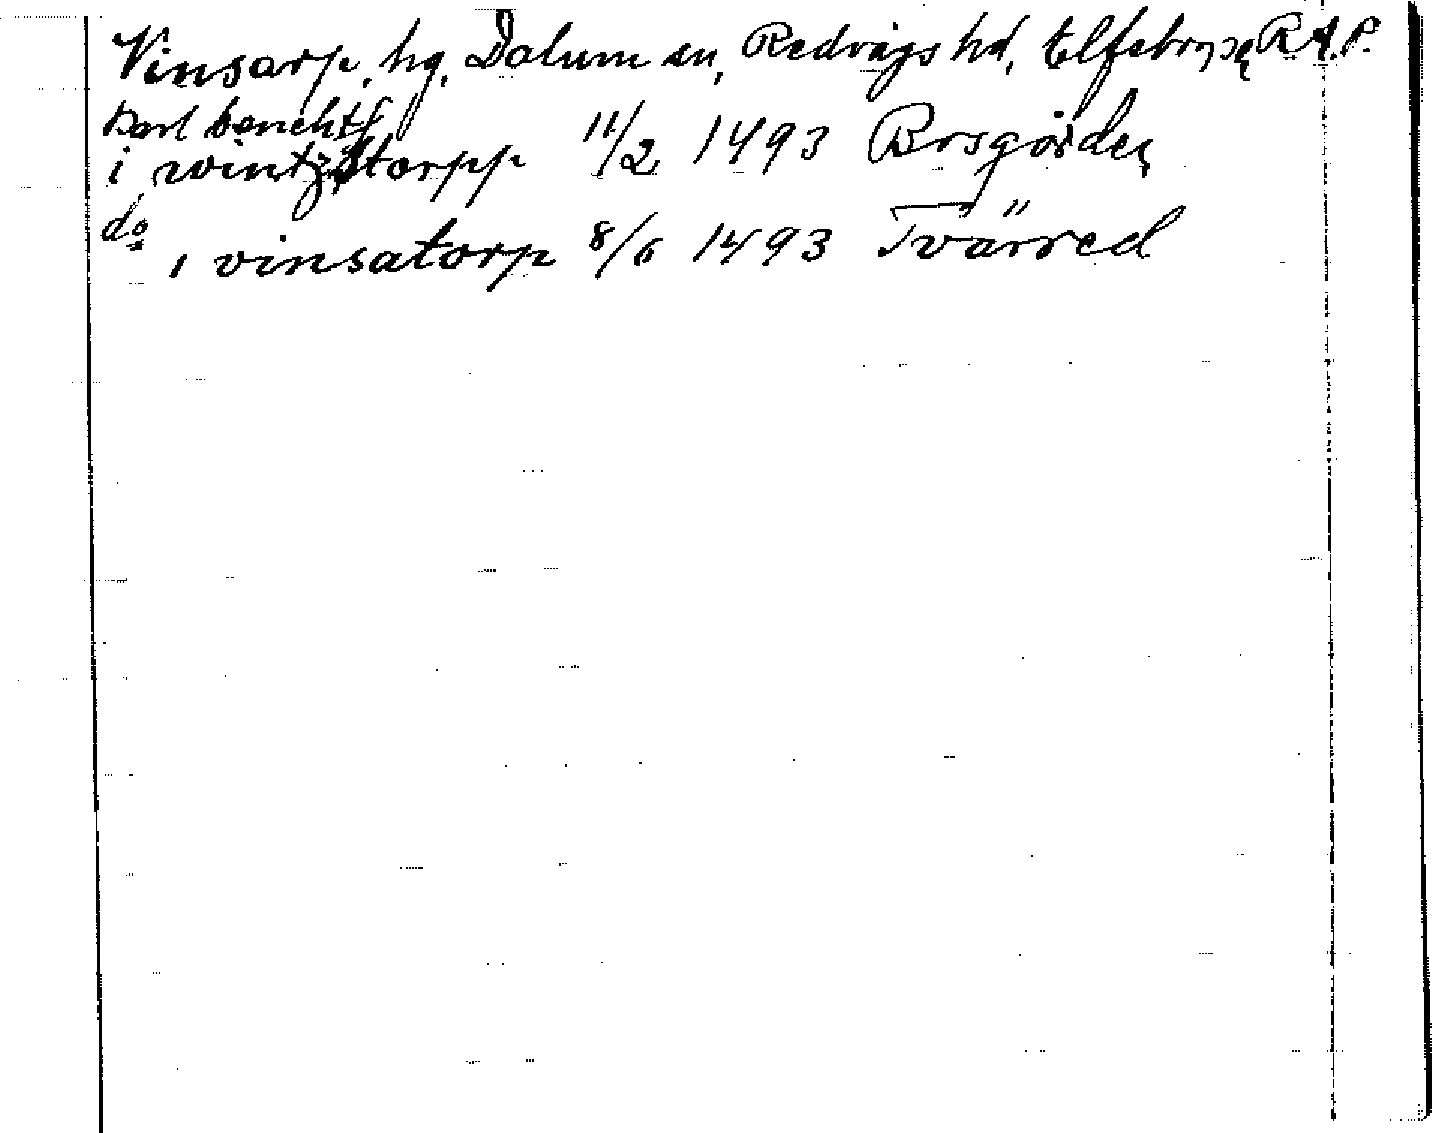 Vinsarp, hg, Dalum sn, Redvägs hd, Elfsborgs R.A.P.
Karl benchtz
i wintzstorpp 11/2 1493 Brsgärde
do i vinsatorp 8/6 1493 Tvärred